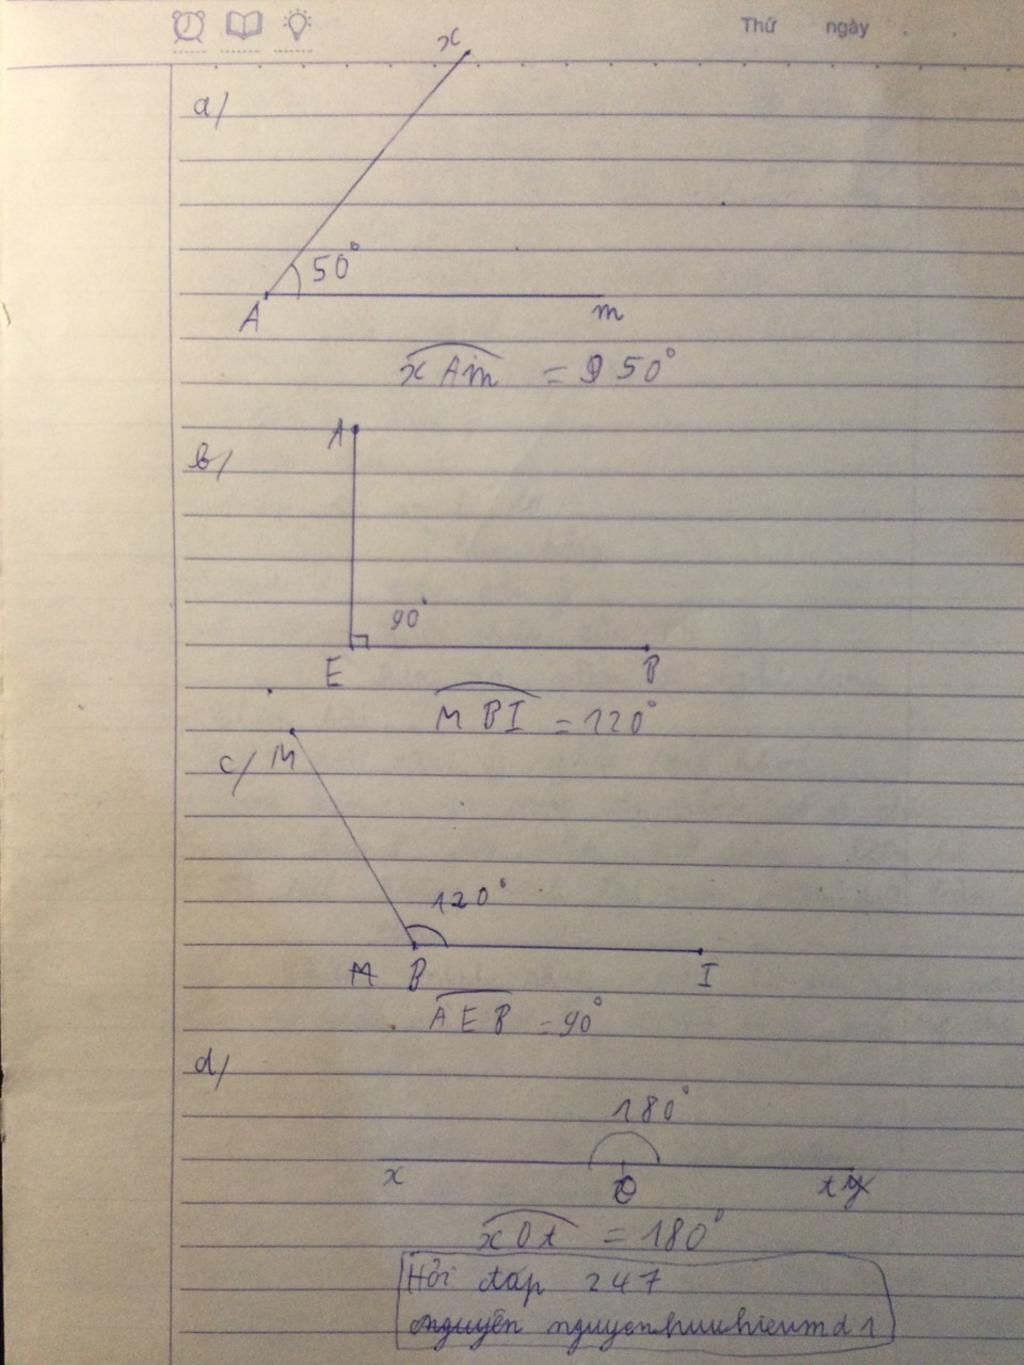 Thứ ngày
x
a/
50°
A m
xAm = 50°
A
b/
90°
E B
MBI = 120°
c/ M
120°
B I
AEB = 90°
d/
180°
x O t
xOt = 180°
Hỏi đáp 247
nguyenhuuhieumd1